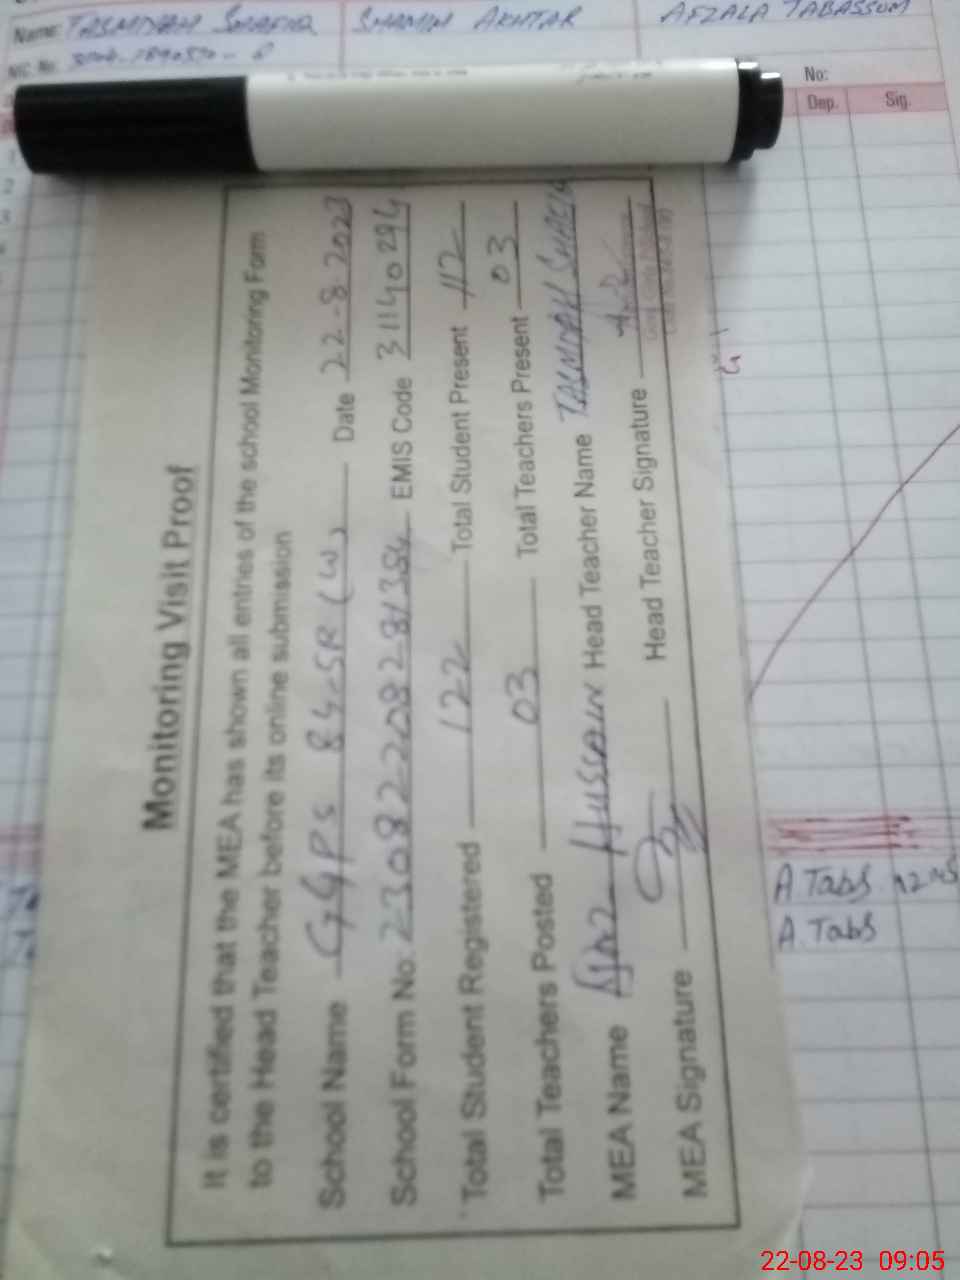 Name: TASMINAH SHAFIQ SHAMIM AKHTAR AFZALA TABASSUM
No:
Dep. Sig.
1
2
3
Monitoring Visit Proof
It is certified that the MEA has shown all entries of the school Monitoring Form
to the Head Teacher before its online submission
School Name GGPS 84-SR (W) Date 22-8-2023
School Form No. 230822208281384 EMIS Code 31140294
Total Student Registered 122 Total Student Present 112
Total Teachers Posted 03 Total Teachers Present 03
MEA Name Ajaz Hussain Head Teacher Name TASMINAH SHAFIQ
MEA Signature Head Teacher Signature
A.Tabs
A.Tabs
22-08-23 09:05